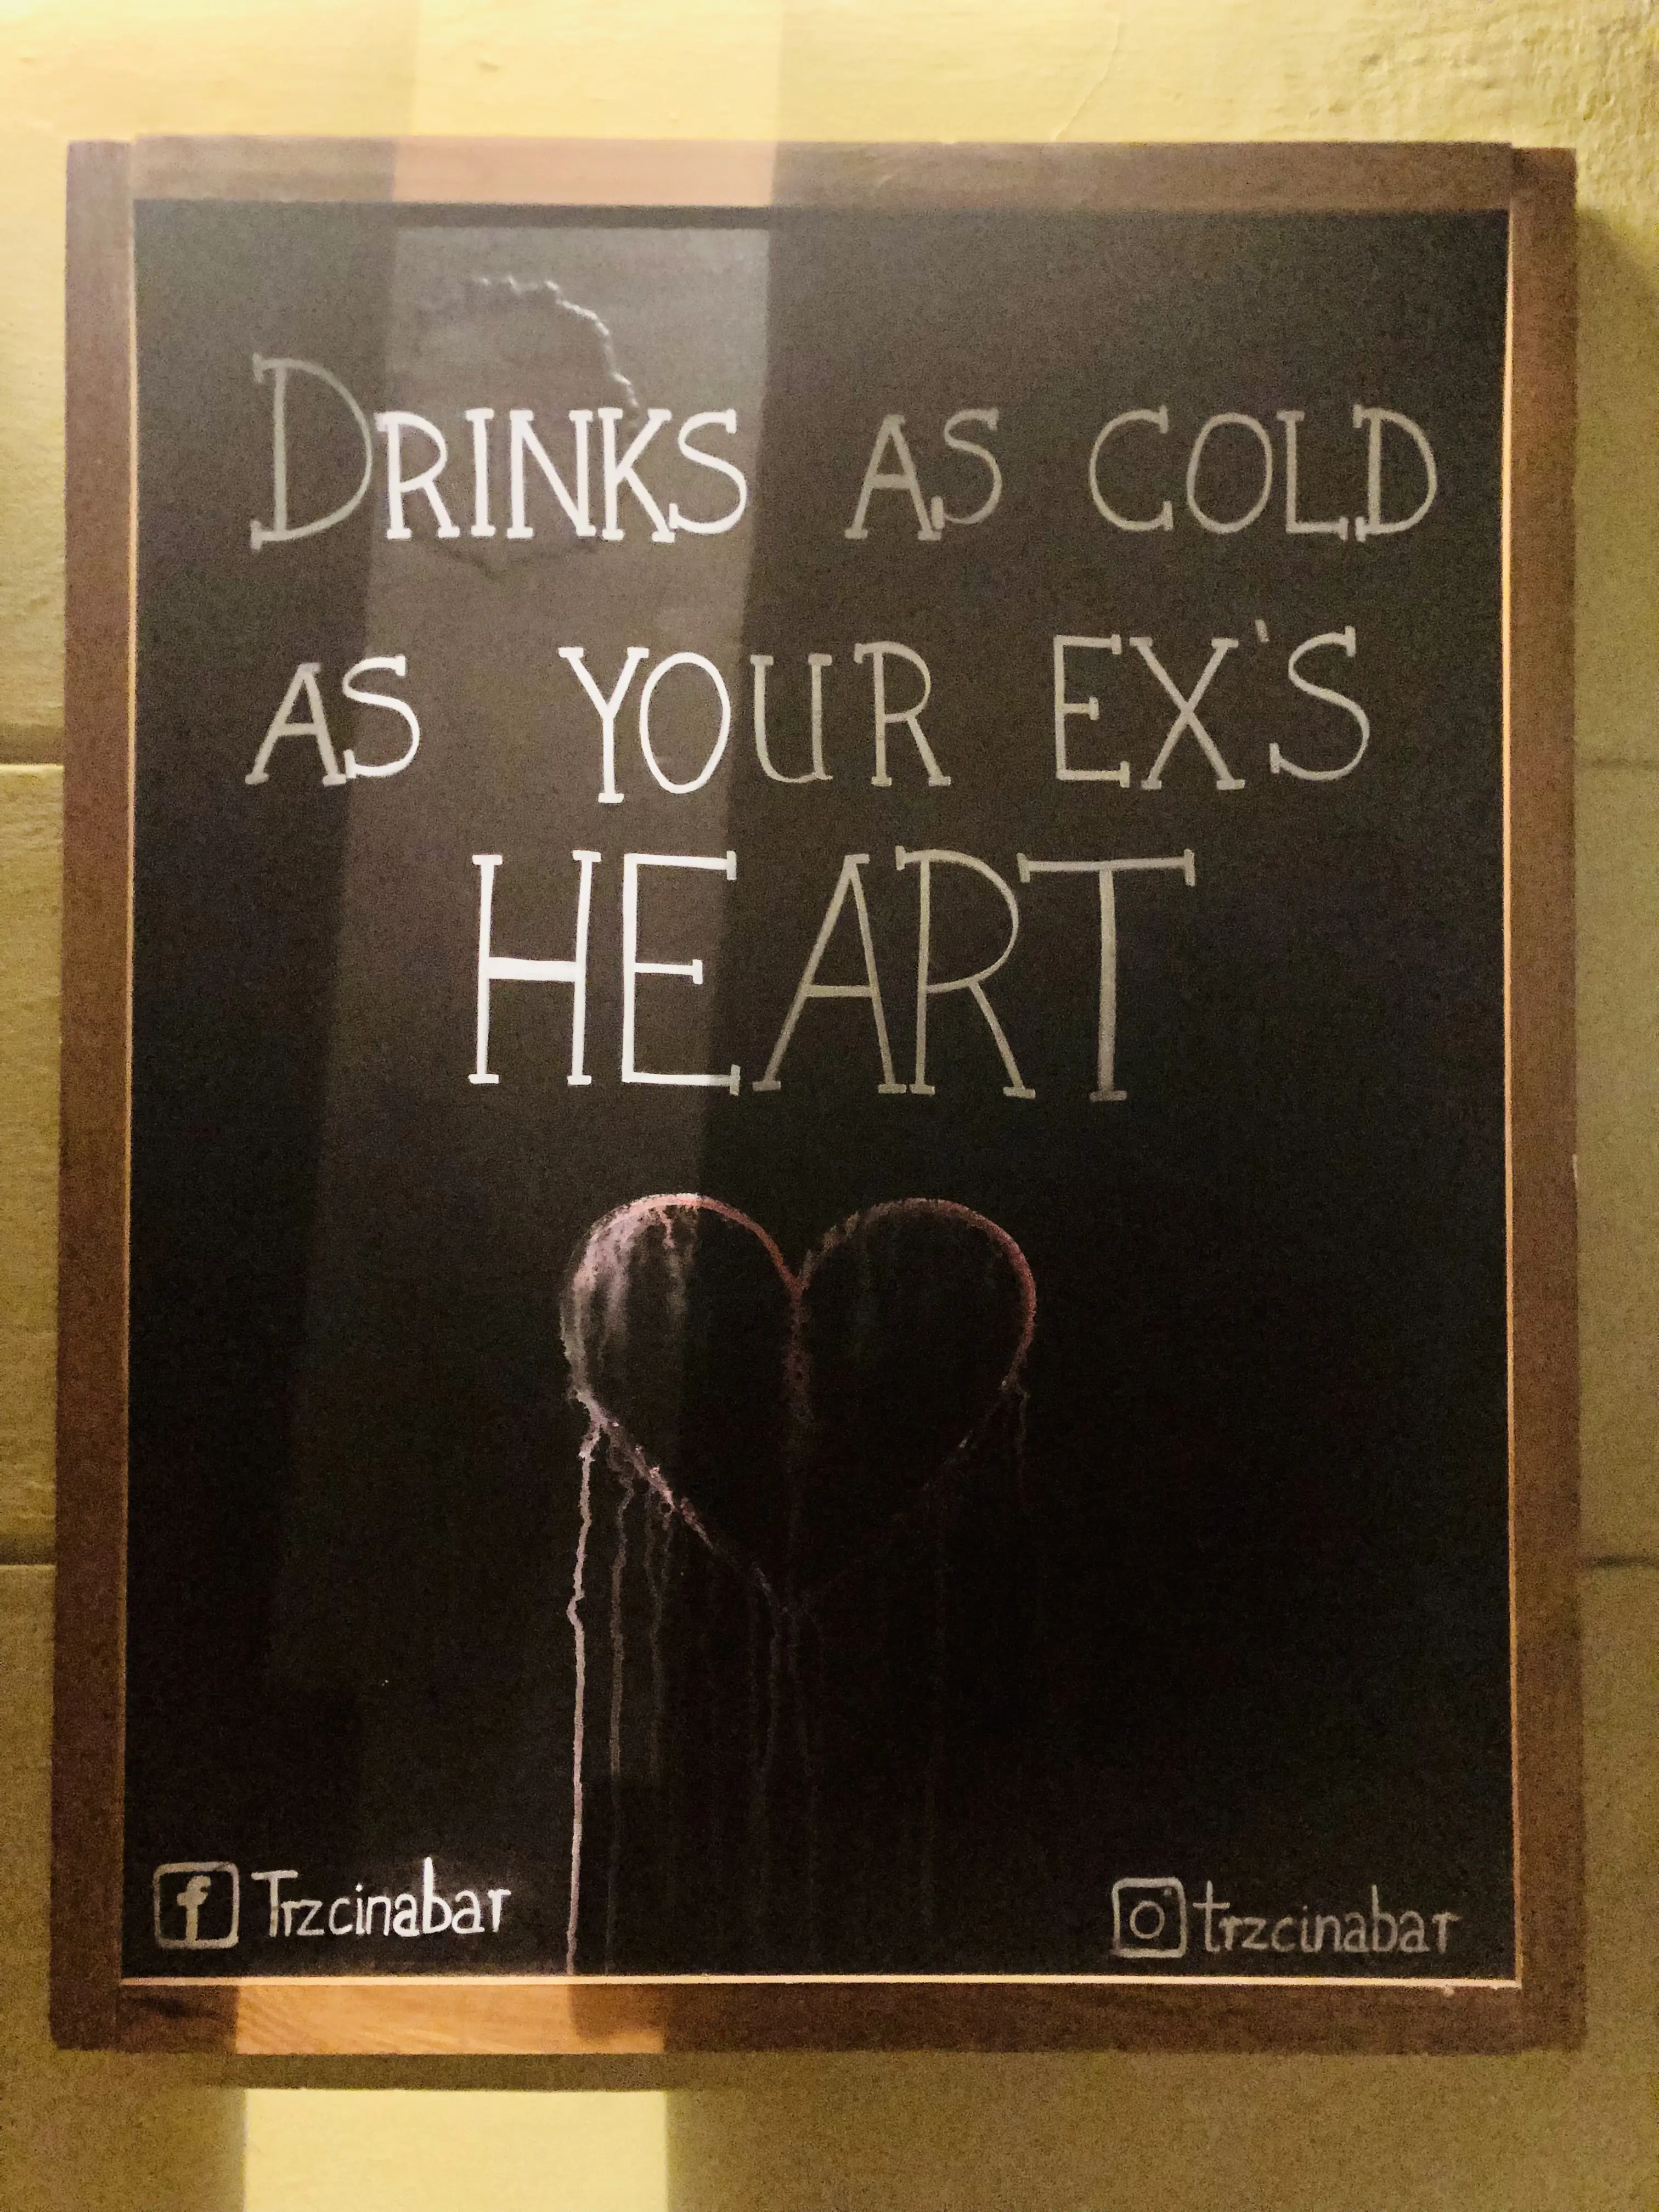 DRINKS AS COLD
AS YOUR EX'S
HEART
Trzcinabar
trzcinabar